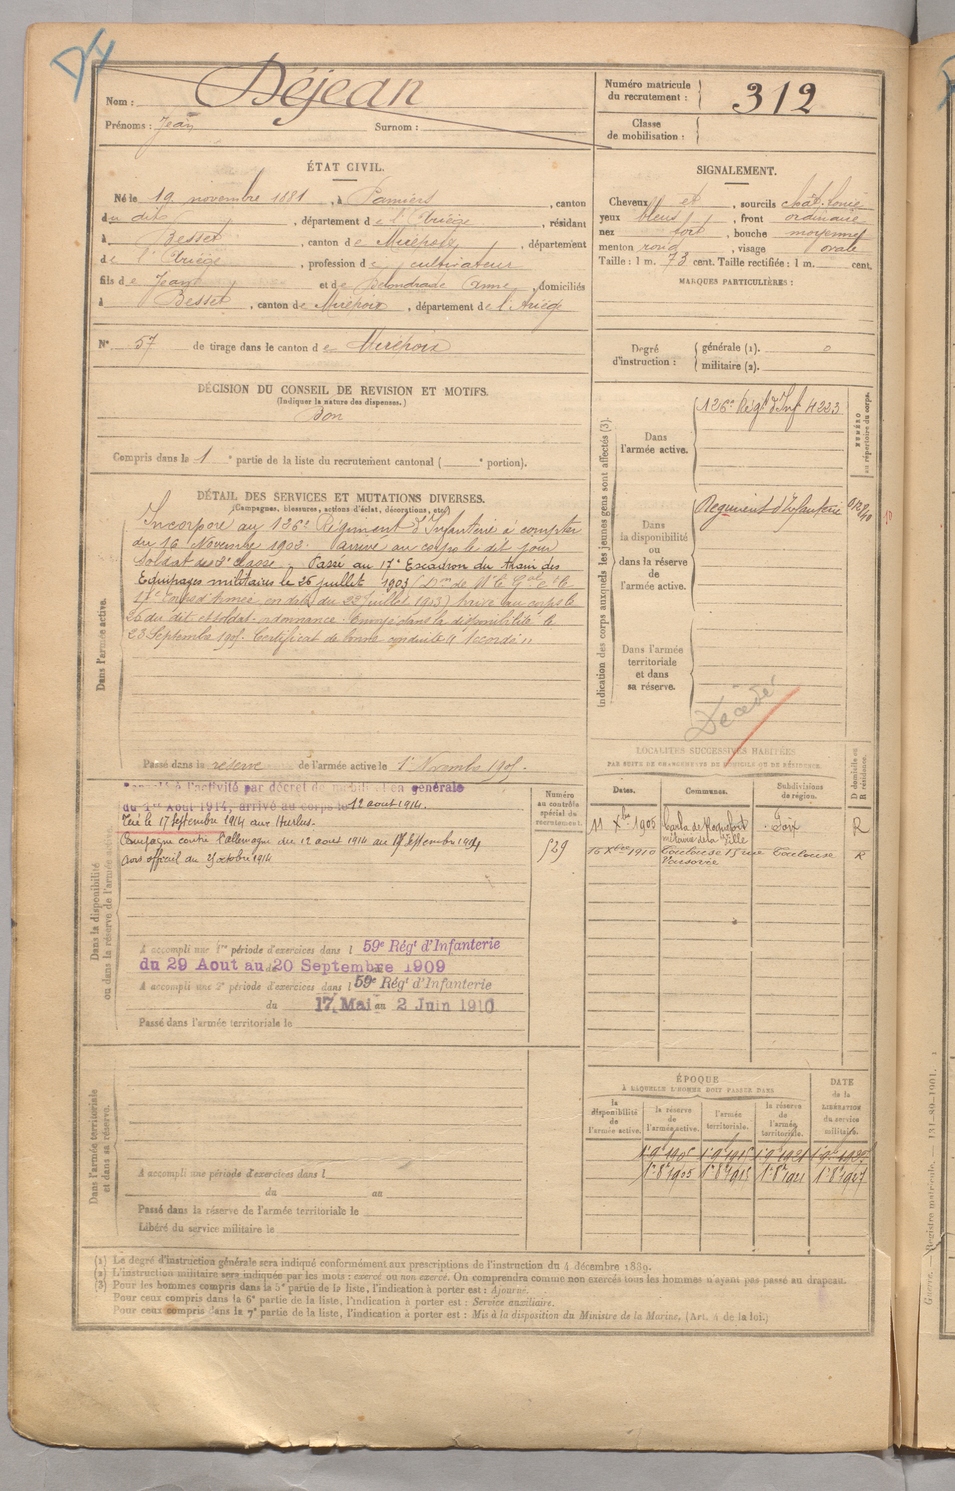 Nom : Déjean
Prénoms : Jean Surnom :
Numéro matricule du recrutement : 312
Classe de mobilisation :
ÉTAT CIVIL.
Né le 19 novembre 1881, à Pamiers, canton
du dit, département de l'Ariège, résidant
à Besset, canton de Mirepoix, département
de l'Ariège, profession de cultivateur
fils de Jean et de Anne, domiciliés
à Besset, canton de Mirepoix, département de l'Ariège
N° 57 de tirage dans le canton de Mirepoix
SIGNALEMENT.
Cheveux et, sourcils chat. foncé
yeux bleus, front ordinaire
nez fort, bouche moyenne
menton rond, visage ovale
Taille : 1 m. 73 cent. Taille rectifiée : 1 m. cent.
MARQUES PARTICULIÈRES :
Degré d'instruction : générale (1). 0
militaire (2).
DÉCISION DU CONSEIL DE REVISION ET MOTIFS.
(Indiquer la nature des dispenses.)
Bon
Compris dans la 1e partie de la liste du recrutement cantonal ( e portion).
DÉTAIL DES SERVICES ET MUTATIONS DIVERSES.
(Campagnes, blessures, actions d'éclat, décorations, etc.)
Dans l'armée active.
Incorporé au 126e Régiment d'Infanterie à compter
du 16 Novembre 1902. Arrivé au corps le dit jour
Soldat de 2e classe. Passé au 17e Escadron du train des
Equipages militaires le 25 juillet 1903
17e Corps d'Armée en date du 23 juillet 1903) Arrivé au corps le
25 du dit et soldat ordonnance. Envoyé dans la disponibilité le
23 Septembre 1905. Certificat de bonne conduite " Accordé "
Passé dans la réserve de l'armée active le 1er Novembre 1905.
Indication des corps auxquels les jeunes gens sont affectés (3).
NUMÉRO au répertoire du corps.
Dans l'armée active.
126e Régt d'Inf 4223
Dans la disponibilité ou dans la réserve de l'armée active.
Régiment d'Infanterie
Dans l'armée territoriale et dans sa réserve.
Décédé
LOCALITÉS SUCCESSIVES HABITÉES
PAR SUITE DE CHANGEMENTS DE DOMICILE OU DE RÉSIDENCE.
Dates. Communes. Subdivisions de région. D domicile ou R résidence.
11 Xbre 1905 Carla de Roquefort Foix R
métairie de la Ville
Xbre 1910 Toulouse 15 rue Toulouse R
Dans la disponibilité ou dans la réserve de l'armée active.
Rappelé à l'activité par décret de mobilisation générale
du 1er Aout 1914, arrivé au corps le 12 aout 1914.
Tué le 17 septembre 1914 aux Hurlus.
Campagne contre l'allemagne du 12 aout 1914 au 17 septembre 1914
Avis officiel du octobre 1914
Numéro au contrôle spécial du recrutement.
529
A accompli une 1re période d'exercices dans l 59e Régt d'Infanterie
du 29 Aout au 20 Septembre 1909
A accompli une 2e période d'exercices dans l 59e Régt d'Infanterie
du 17 Mai au 2 Juin 1910
Passé dans l'armée territoriale le
Dans l'armée territoriale et dans sa réserve.
A accompli une période d'exercices dans l
du au
Passé dans la réserve de l'armée territoriale le
Libéré du service militaire le
ÉPOQUE
À LAQUELLE L'HOMME DOIT PASSER DANS
DATE de la LIBÉRATION du service militaire.
la disponibilité de l'armée active. la réserve de l'armée active. l'armée territoriale. la réserve de l'armée territoriale.
1er 8bre 1905 1er 8bre 1915 1er 8bre 1921 1er 8bre 1927
(1) Le degré d'instruction générale sera indiqué conformément aux prescriptions de l'instruction du 4 décembre 1889.
(2) L'instruction militaire sera indiquée par les mots : exercé ou non exercé. On comprendra comme non exercés tous les hommes n'ayant pas passé au drapeau.
(3) Pour les hommes compris dans la 5e partie de la liste, l'indication à porter est : Ajourné.
Pour ceux compris dans la 6e partie de la liste, l'indication à porter est : Service auxiliaire.
Pour ceux compris dans la 7e partie de la liste, l'indication à porter est : Mis à la disposition du Ministre de la Marine. (Art. 4 de la loi.)
Guerre. — Registre matricule. — 131-80-1901.